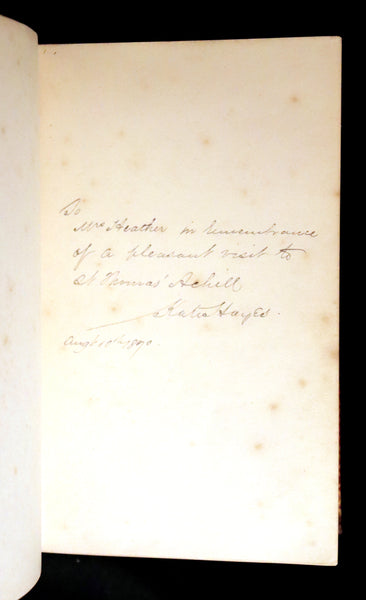 To
Mrs Heather in remembrance
of a pleasant visit to
St Thomas' Achill
Katie Hayes.
Augt 10th 1890.